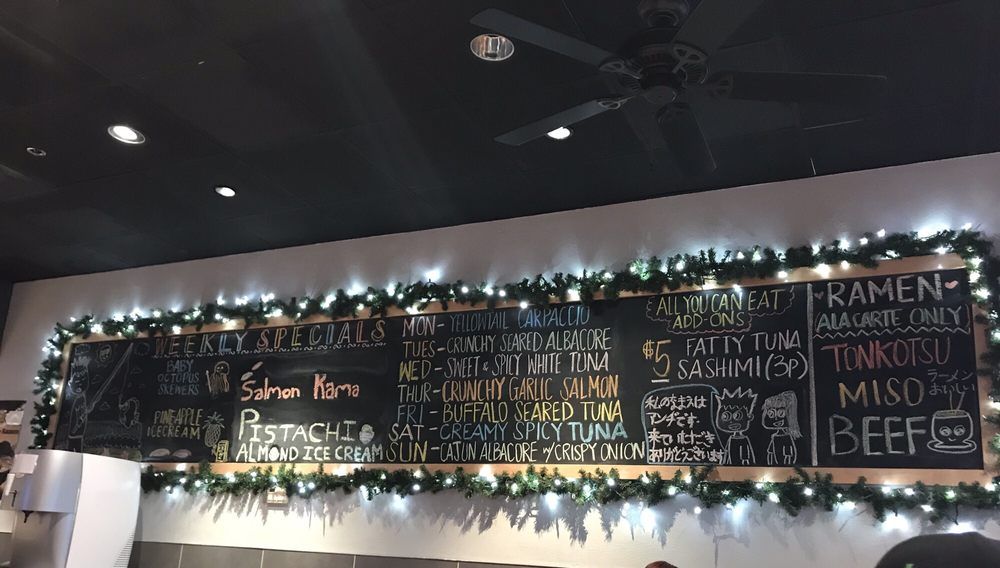 WEEKLY SPECIALS
BABY
OCTOPUS
SKEWERS
PINEAPPLE
ICECREAM
Salmon Kama
PISTACHI
ALMOND ICE CREAM
MON - YELLOWTAIL CARPACCIO
TUES - CRUNCHY SEARED ALBACORE
WED - SWEET & SPICY WHITE TUNA
THUR - CRUNCHY GARLIC SALMON
FRI - BUFFALO SEARED TUNA
SAT - CREAMY SPICY TUNA
SUN - CAJUN ALBACORE w/ CRISPY ONION
ALL YOU CAN EAT
ADD-ONS
$5 FATTY TUNA
SASHIMI (3P)
私のなまえは
です
来て
ありがとうございます
RAMEN
ALA CARTE ONLY
TONKOTSU
MISO
BEEF
ラーメン
おいしい